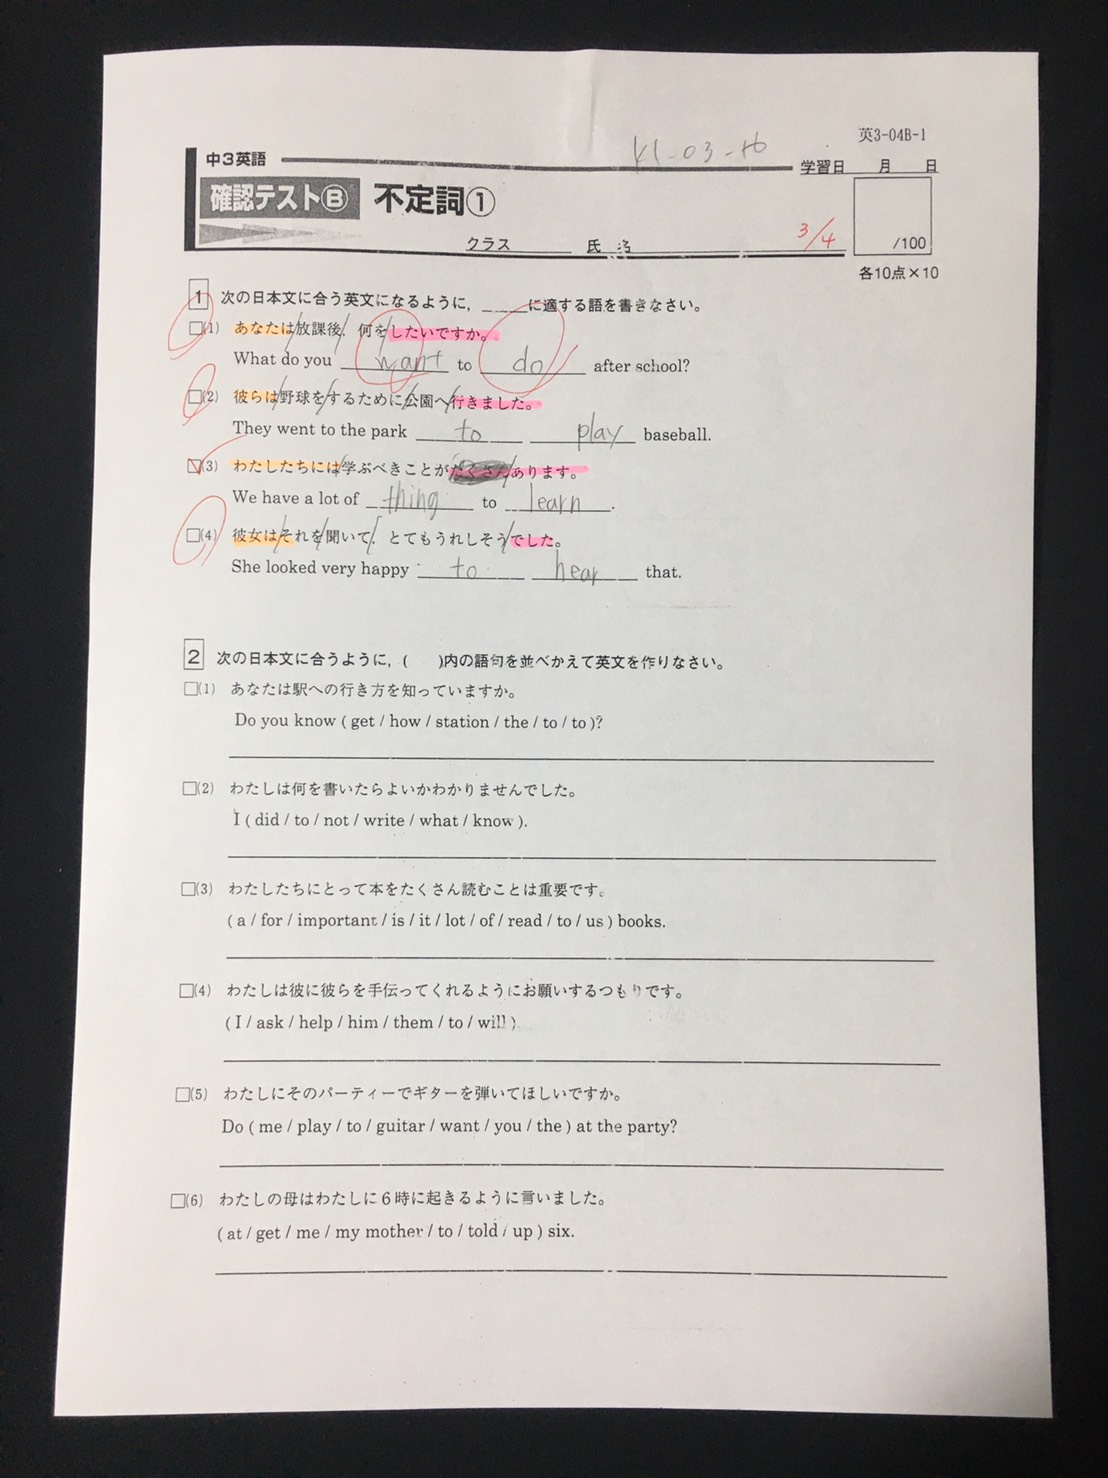 英3-04B-1
中3英語
学習日 月 日
確認テストⒷ 不定詞①
クラス 氏名
3/4
/100
各10点×10
1 次の日本文に合う英文になるように，____に適する語を書きなさい。
□(1) あなたは/放課後/，何を/したいですか。
What do you want to do after school?
□(2) 彼らは/野球を/するために/公園へ/行きました。
They went to the park to play baseball.
□(3) わたしたちには/学ぶべきことがたくさん/あります。
We have a lot of thing to learn.
□(4) 彼女は/それを/聞いて/，とてもうれしそう/でした。
She looked very happy to hear that.
2 次の日本文に合うように，( )内の語句を並べかえて英文を作りなさい。
□(1) あなたは駅への行き方を知っていますか。
Do you know ( get / how / station / the / to / to )?
□(2) わたしは何を書いたらよいかわかりませんでした。
I ( did / to / not / write / what / know ).
□(3) わたしたちにとって本をたくさん読むことは重要です。
( a / for / important / is / it / lot / of / read / to / us ) books.
□(4) わたしは彼に彼らを手伝ってくれるようにお願いするつもりです。
( I / ask / help / him / them / to / will )
□(5) わたしにそのパーティーでギターを弾いてほしいですか。
Do ( me / play / to / guitar / want / you / the ) at the party?
□(6) わたしの母はわたしに6時に起きるように言いました。
( at / get / me / my mother / to / told / up ) six.